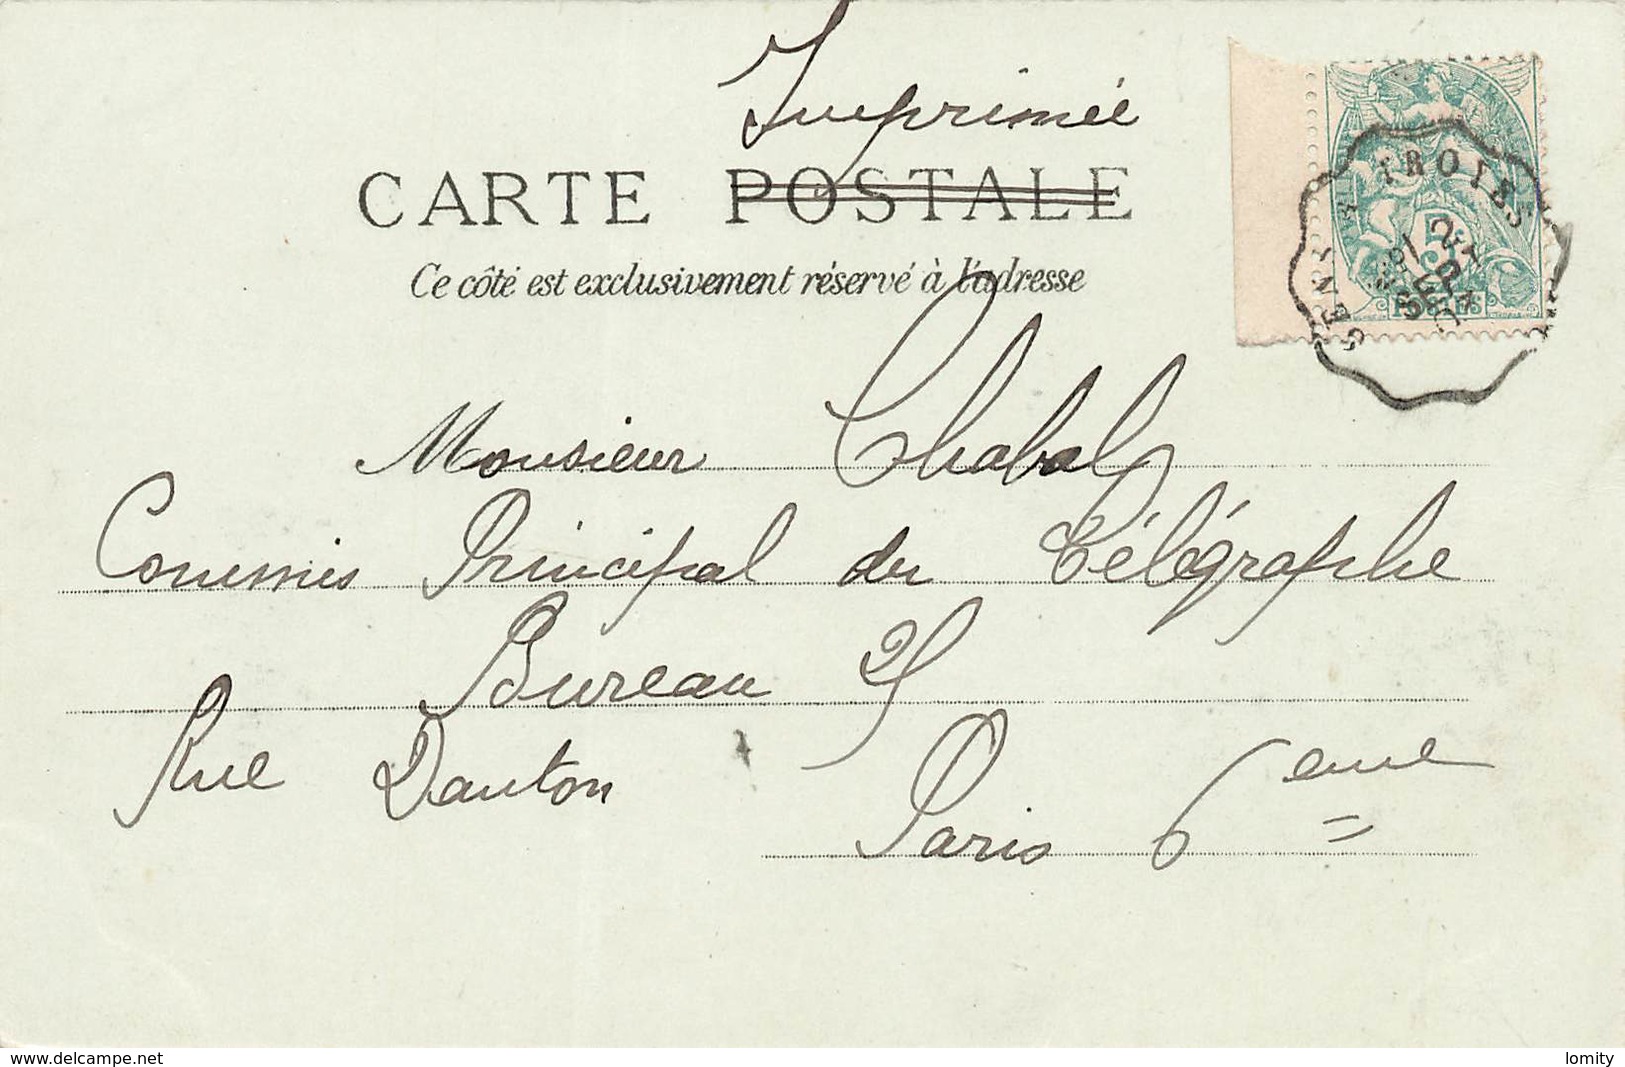 Imprimée
CARTE POSTALE
Ce côté est exclusivement réservé à l'adresse
TROYES
SEP
5
POSTES
Monsieur Chabal
Commis Principal du Télégraphe
Bureau 25
Rue Danton
Paris 6eme
www.delcampe.net
lomity